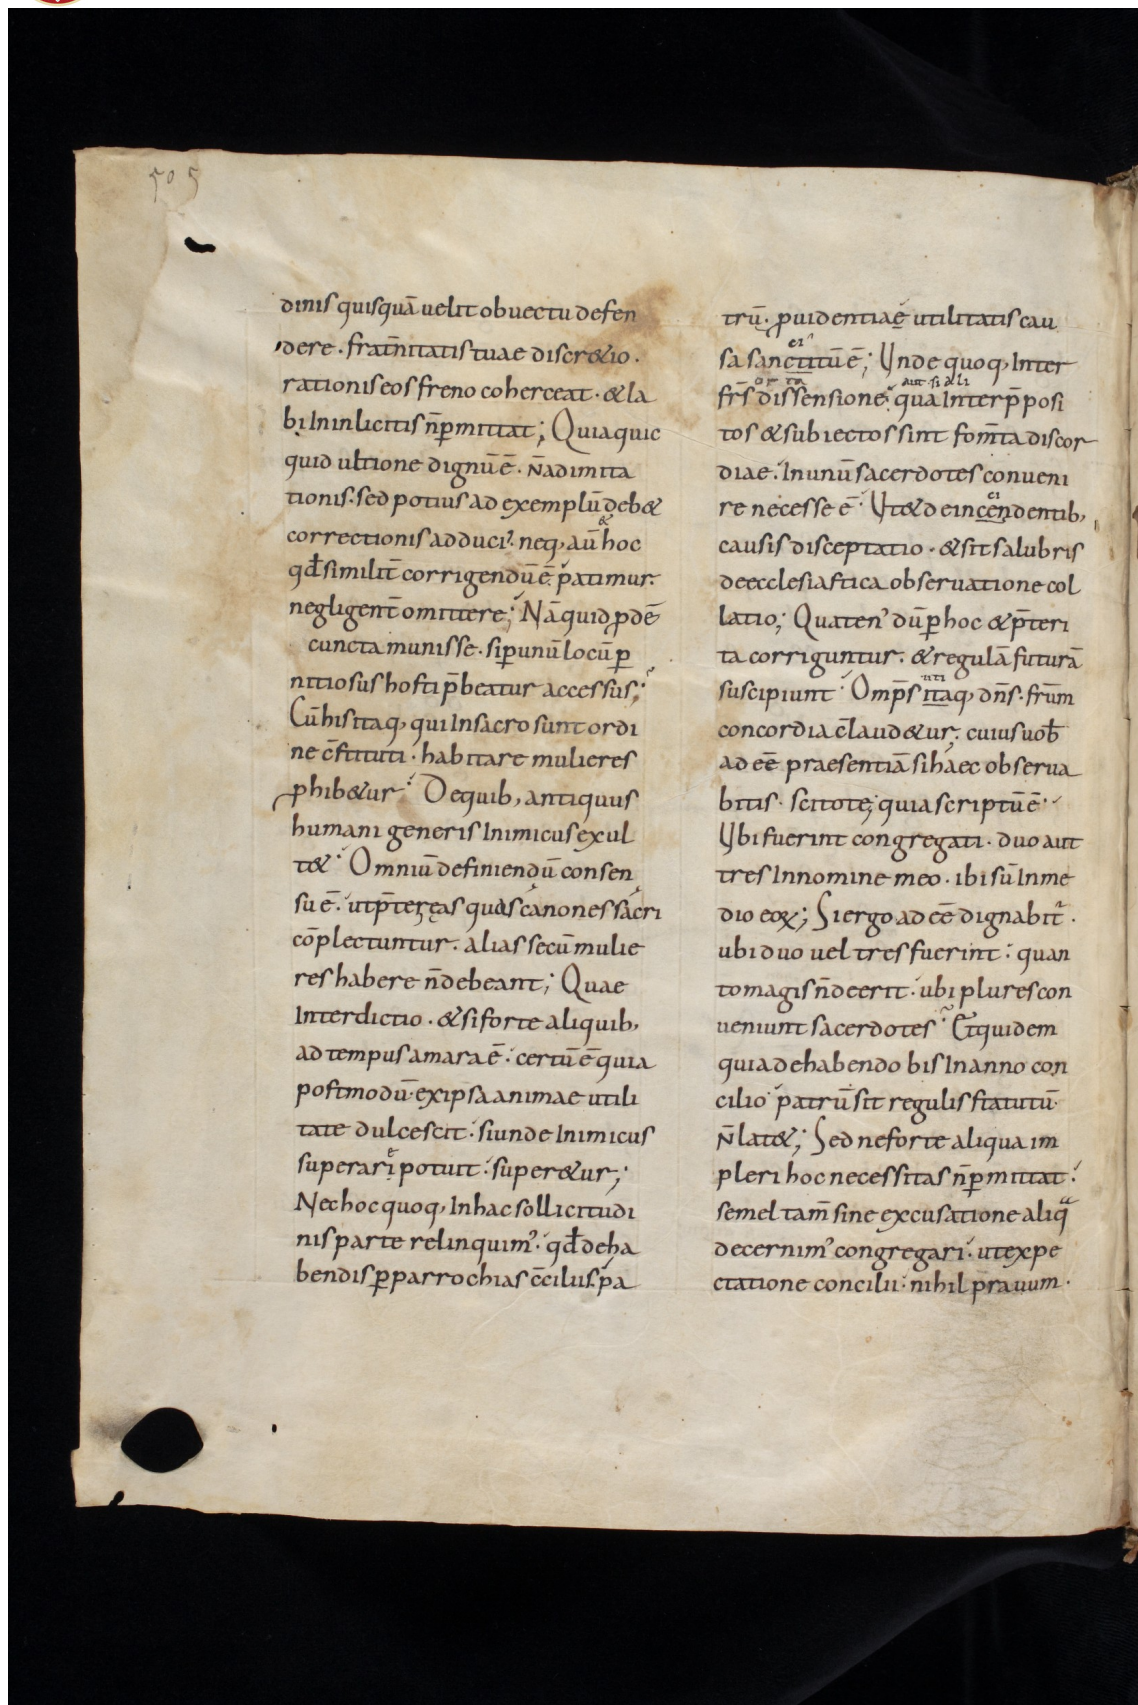 505
dinis quisquā uelit obuectu defen
dere · frat̄nitatis tuae discr&io ·
rationis eos freno coherceat · & la
bi In inlicitis n̄ p̄mittat; Quia quic
quid ultione dignū ē · N̄ ad imita
tionis · sed potius ad exemplū deb&
&
correctionis adduci · neq, aū hoc
qđ similit̄ corrigendū ē p̄atimur ·
negligent̄ omittere; Nā quid ꝓdē
cuncta munisse · si ꝑ unū locū ꝑ
nitiosus hosti p̄beatur accessus;
Cū his itaq, qui In sacro sunt ordi
ne c̄stituti · habitare mulieres
ꝓhib&ur · De quib, antiquus
humani generis Inimicus exul
t& · Omniū definiendū consen
su ē · ut p̄ter eas quas canones sacri
cō̄plectuntur · alias secū mulie
res habere n̄ debeant; Quae
Interdictio · & si forte aliquib,
ad tempus amara ē · certū ē quia
postmodū ex ipsa animae utili
tate dulcescit · si unde Inimicus
e
superari potuit · super&ur;
Nec hoc quoq, In hac sollicitudi
nis parte relinquim' · qđ de ha
bendis ꝑ parrochias c̄ciliis · pa
trū · ꝓuidentiae utilitatis cau
ei
sa sanctitū ē; Unde quoq, Inter
or ta aut si ali
fr̄s dissensione qua Inter p̄posi
tos & subiectos sint fom̄ta discor
diae · In unū sacerdotes conueni
ei
re necesse ē · Ut & de incendentib,
causis disceptatio · & sit salubris
de ecclesiastica obseruatione col
latio; Quaten' dū ꝑ hoc & p̄teri
ta corriguntur · & regulā futurā
uti
suscipiunt · Omp̄s itaq, dn̄s · frūm
concordia c̄laud&ur · cuius uob̄
adeē praesentiā si haec obserua
bitis · scitote; quia scriptū ē ·
Ubi fuerint congregati · duo aut
tres In nomine meo · ibi sū In me
dio eoꝝ; Si ergo adeē dignabit̄ ·
ubi duo uel tres fuerint · quan
to magis n̄ deerit · ubi plures con
ueniunt sacerdotes · Et quidem
quia de habendo bis In anno con
cilio patrū sit regulis statutū ·
N̄ lat&; Sed ne forte aliqua im
pleri hoc necessitas n̄ p̄mittat ·
a
semel tam̄ sine excusatione aliq
decernim' congregari · ut expe
ctatione concilii · nihil prauum ·